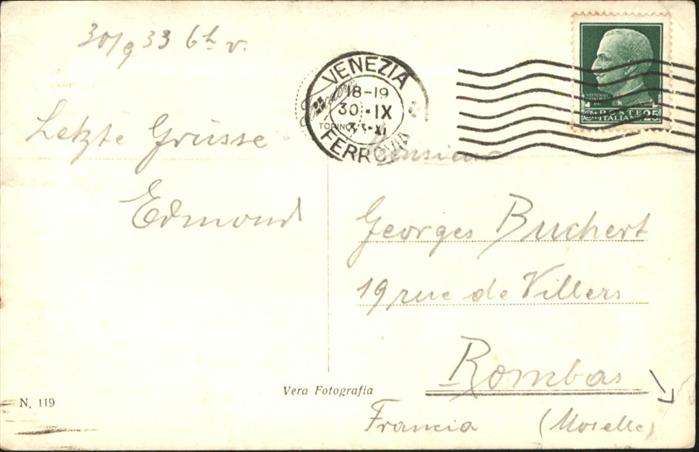 30/9 33 6h v.
Letzte Grüsse
Edmond
VENEZIA
18-19
30·IX
FERROVIA
POSTE
ITALIANE
25
Georges Buchert
19 rue de Villers
Rombas
Francia (Moselle)
Vera Fotografia
N. 119